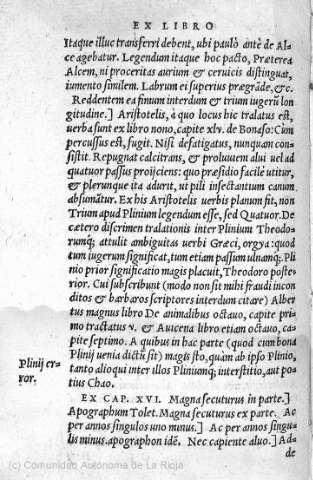 EX LIBRO
Itaque illuc transferri debent, ubi paulò antè de Al-
ce agebatur. Legendum itaque hoc pacto, Præterea
Alcem, ni proceritas aurium & ceruicis distinguat,
iumento similem. Labrum ei superius prægrāde, &c.
Reddentem ea fimum interdum & trium iugerū lon
gitudine.] Aristotelis, à quo locus hic tralatus est,
uerba sunt ex libro nono, capite xlv. de Bonaso: Cùm
percussus est, fugit. Nisi defatigatus, nunquam con-
sistit. Repugnat calcitrans, & proluuem alui uel ad
quatuor passus proijciens: quo præsidio facile utitur,
& plerunque ita adurit, ut pili insectantium canum
absumātur. Ex his Aristotelis uerbis planum fit, non
Trium apud Plinium legendum esse, sed Quatuor. De
cætero discrimen tralationis inter Plinium Theodo-
rumq; attulit ambiguitas uerbi Græci, orgya: quod
tum iugerum significat, tum etiam passum ulnamq;. Pli
nio prior significatio magis placuit, Theodoro poste-
rior. Cui subscribunt (modo non sit mihi fraudi incon
ditos & barbaros scriptores interdum citare) Alber
tus magnus libro De animalibus octauo, capite pri-
mo tractatus v. & Auicena libro etiam octauo, ca-
pite septimo. A quibus in hac parte (quod cum bona
Plinij uenia dictū sit) magis sto, quàm ab ipso Plinio,
tanto alioqui inter illos Pliniumq; interstitio, aut po
tius Chao.
Plinij er-
ror.
EX CAP. XVI. Magna secuturus in parte.]
Apographum Tolet. Magna secuturus ex parte. Ac
per annos singulos uno minus.] Ac per annos singu-
lis minus. apographon idē. Nec capiente aluo.] Ad-
de
(c) Comunidad Autónoma de La Rioja